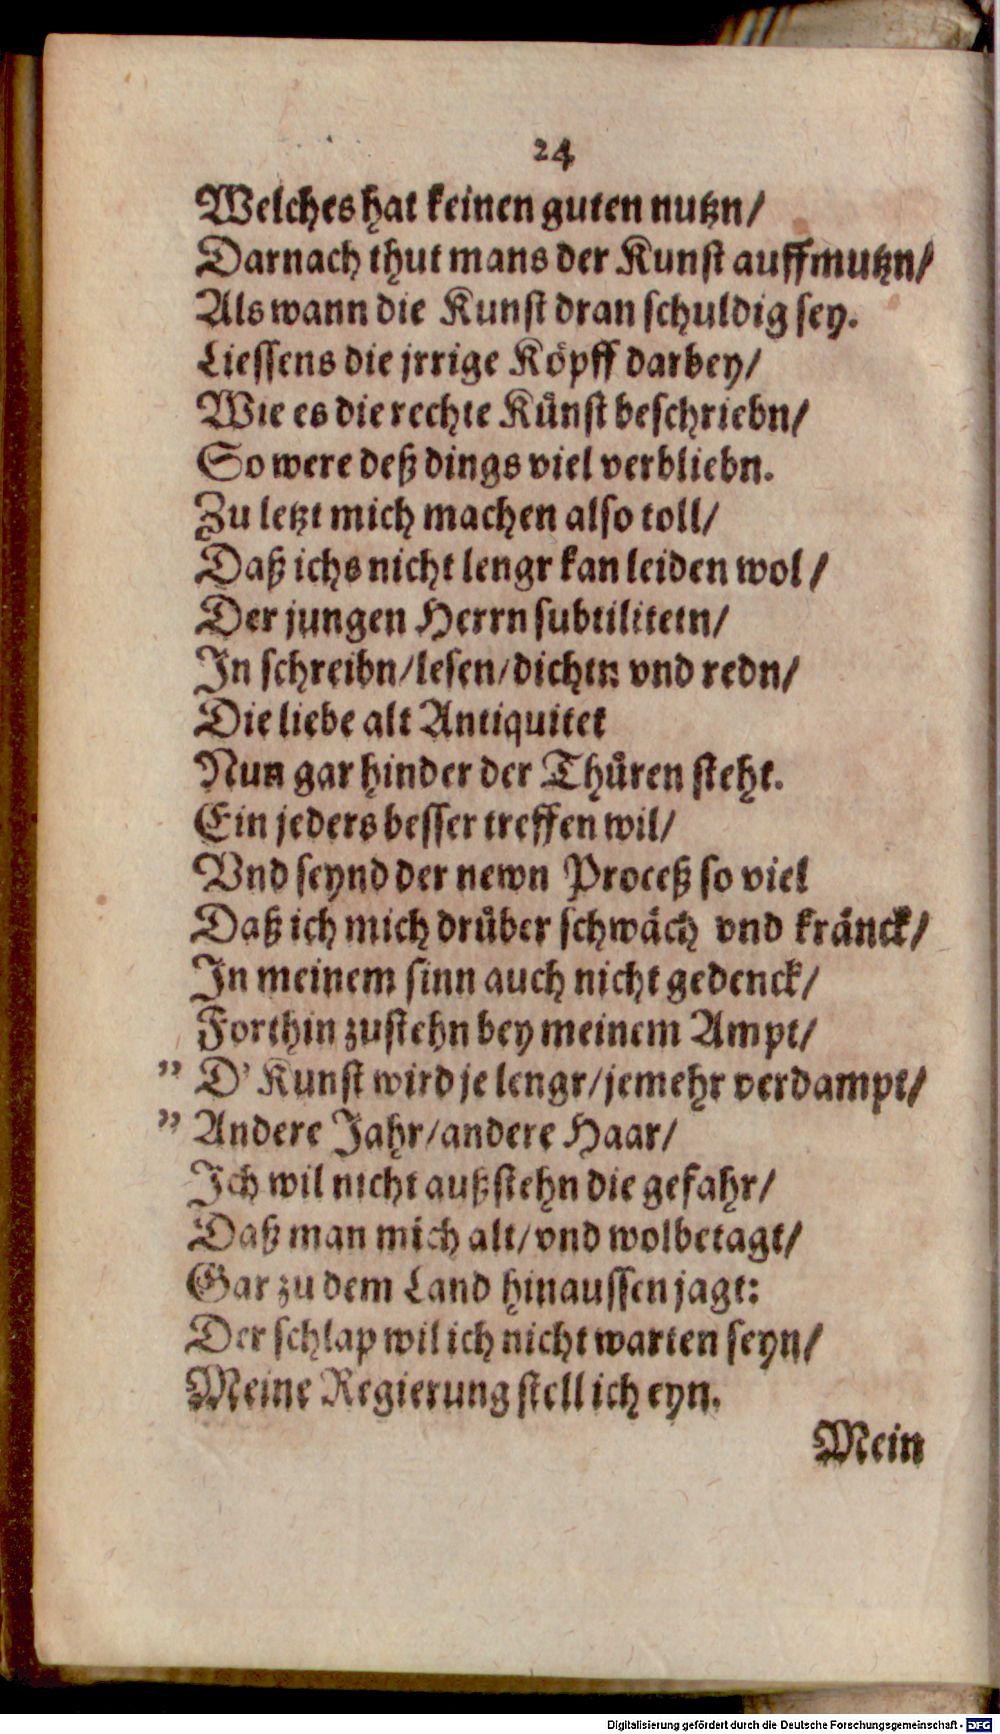 24
Welches hat keinen guten nutzn/
Darnach thut mans der Kunst auffmutzn/
Als wann die Kunst dran schuldig sey.
Liessens die jrrige Köpff darbey/
Wie es die rechte Künst beschriebn/
So were deß dings viel verbliebn.
Zu letzt mich machen also toll/
Daß ichs nicht lengr kan leiden wol/
Der jungen Herrn subtilitetn/
In schreibn/lesen/dichtn vnd redn/
Die liebe alt Antiquitet
Nun gar hinder der Thüren steht.
Ein jeders besser treffen wil/
Vnd seynd der newn Proceß so viel
Daß ich mich drüber schwäch vnd kränck/
In meinem sinn auch nicht gedenck/
Forthin zustehn bey meinem Ampt/
" D' Kunst wird je lengr/jemehr verdampt/
" Andere Jahr/andere Haar/
Ich wil nicht außstehn die gefahr/
Daß man mich alt/vnd wolbetagt/
Gar zu dem Land hinaussen jagt:
Der schlap wil ich nicht warten seyn/
Meine Regierung stell ich eyn.
Mein
Digitalisierung gefördert durch die Deutsche Forschungsgemeinschaft - DFG